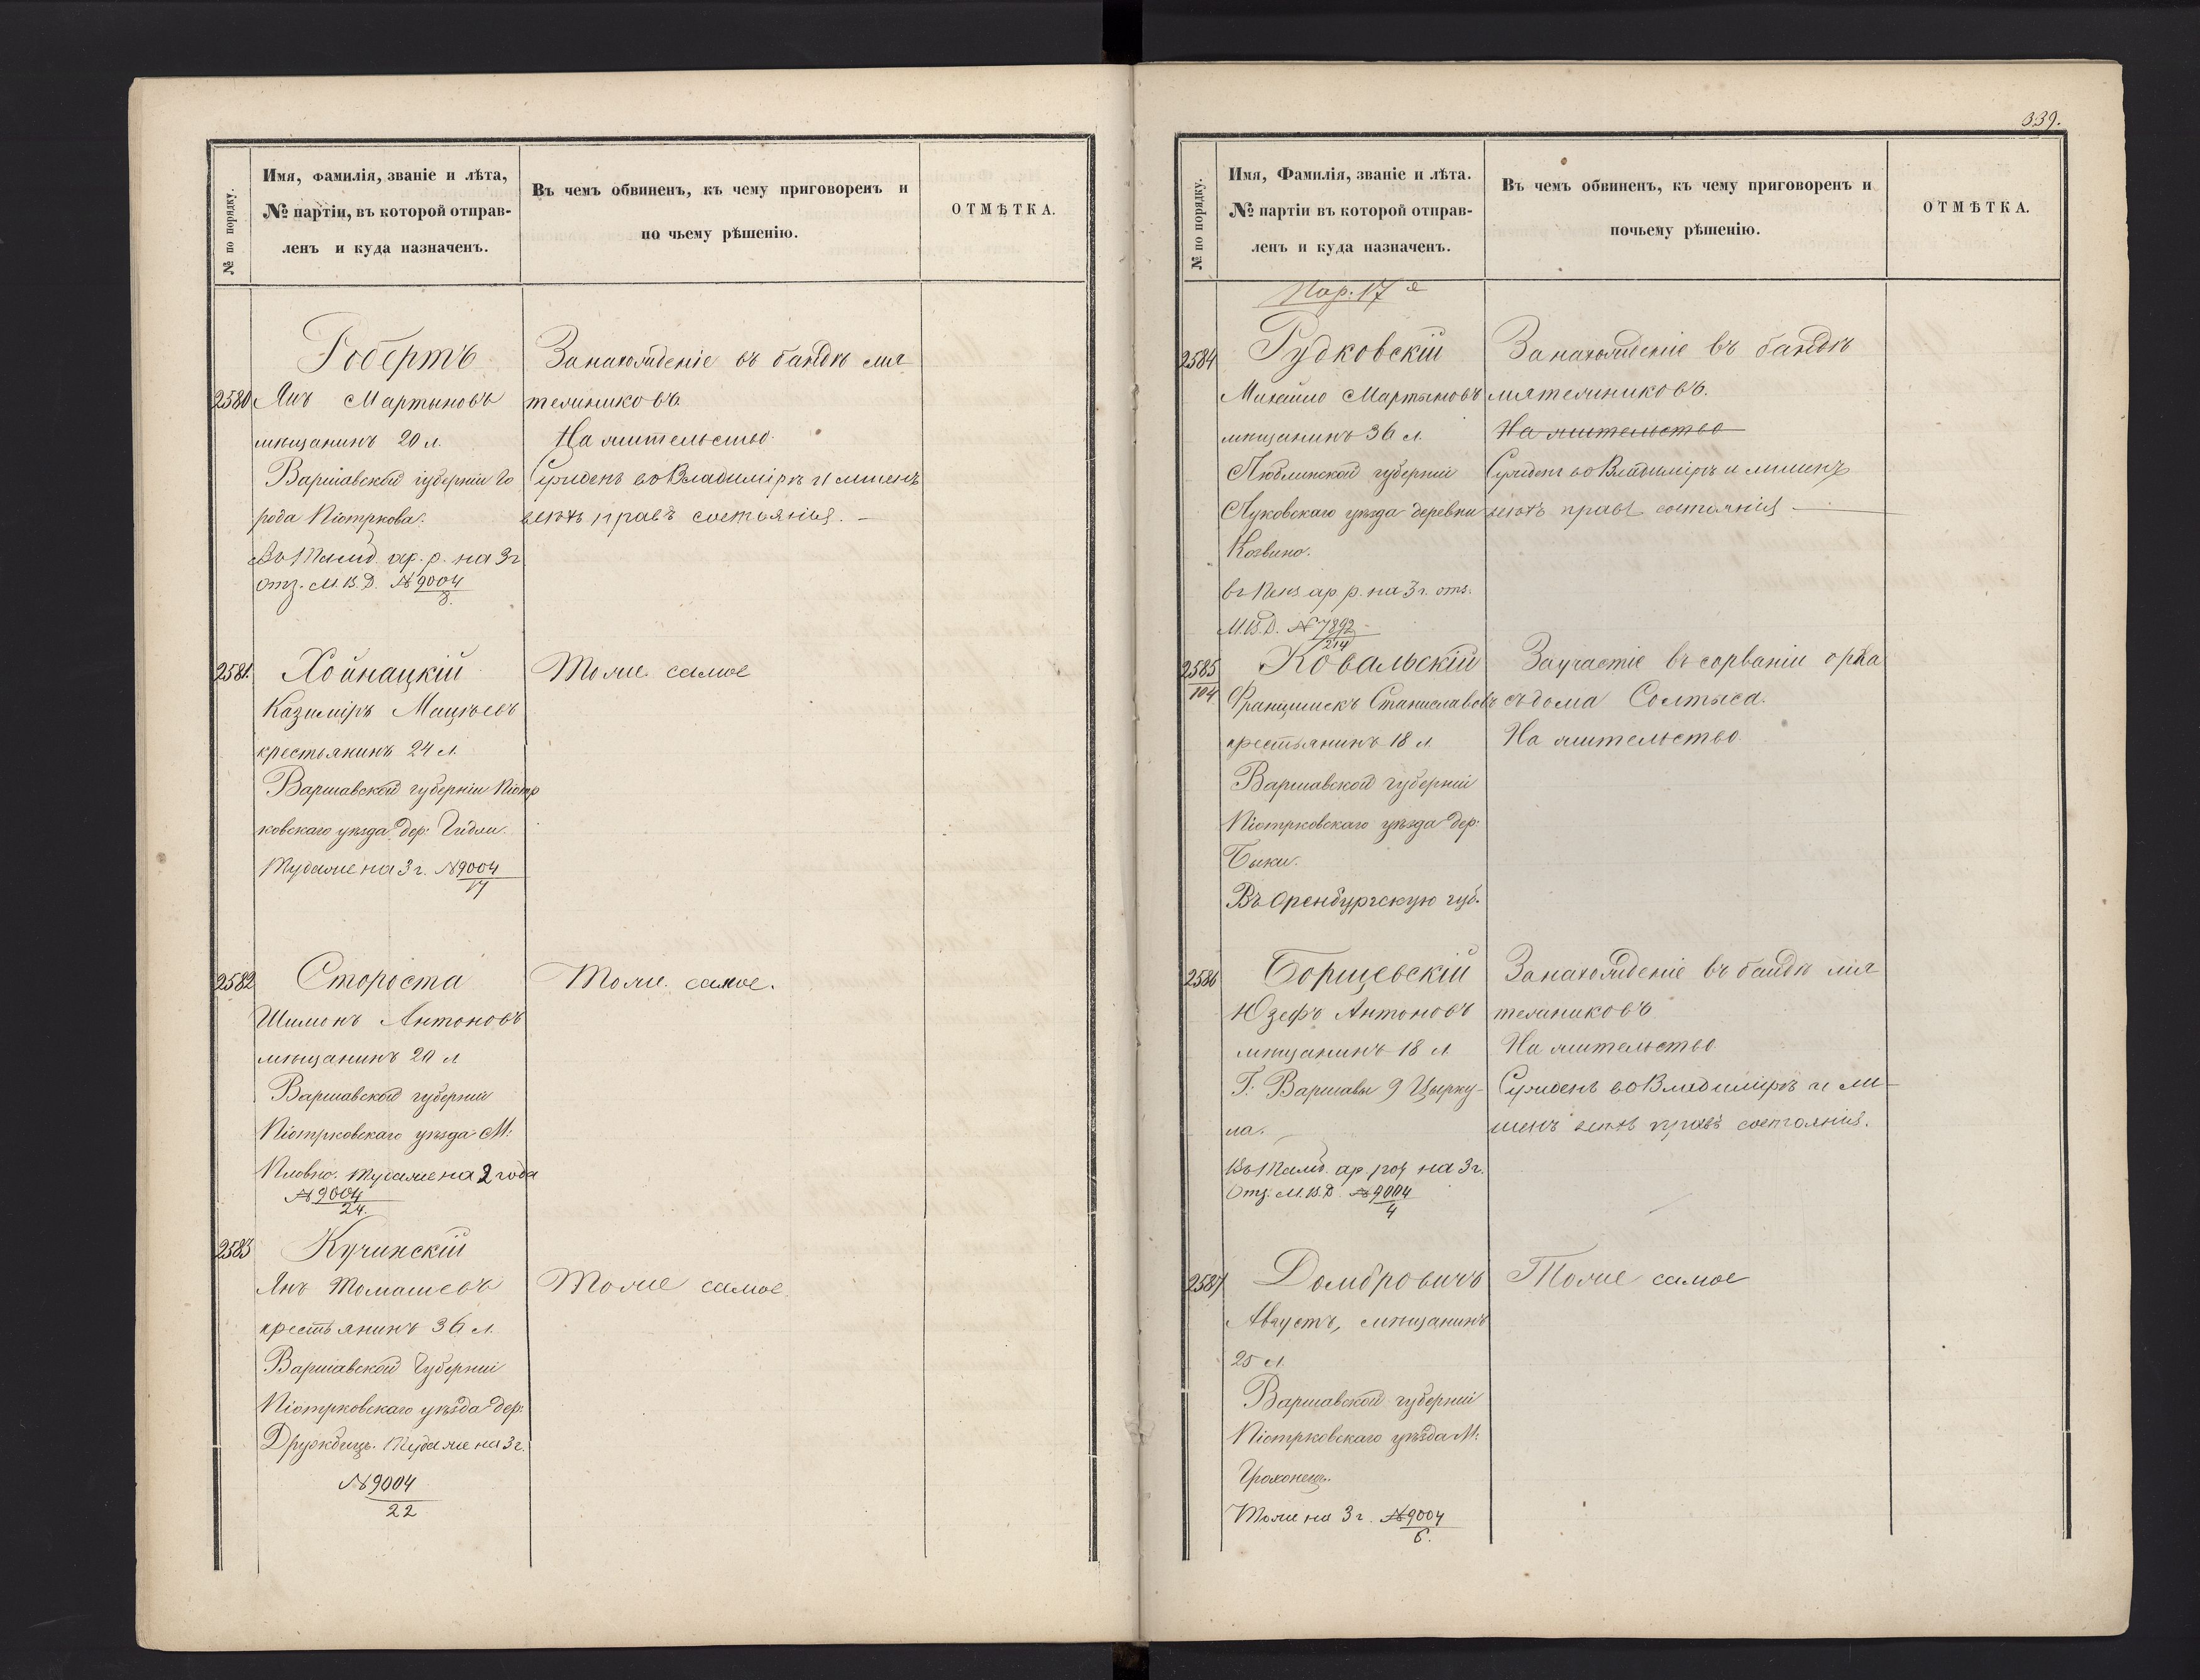 № по порядку.
Имя, фамилія, званіе и лѣта,
№ партіи, въ которой отправ-
ленъ и куда назначенъ.
Въ чемъ обвиненъ, къ чему приговоренъ и
по чьему рѣшенію.
ОТМѢТКА.
Робертъ
2580 Янъ Мартыновъ
мѣщанинъ 20 л.
Варшавской губерніи го
рода Піотркова.
ар. р. на 3 г
отз. М. В. Д. № 9004
8.
За нахожденіе въ бандѣ мя
тежниковъ.
На жительство.
Суждень во Владимірѣ и лишенъ
всѣхъ правъ состоянія. —
2581. Хойнацкій
Казиміръ Мацѣевъ
крестьянинъ 24 л.
Варшавской губерніи Піотр
ковскаго уѣзда дер: Гидли.
Туда же на 3 г. № 9004
17
Тоже самое
2582 Стороста
Шимонъ Антоновъ
мѣщанинъ 20 л
Варшавской губерніи
Піотрковскаго уѣзда М:
Плавно. Туда же на 2 года
№ 9004
24.
Тоже самое.
2583 Кучинскій
Янъ Томашевъ
крестьянинъ 36 л.
Варшавской Губерніи
Піотрковскаго уѣзда дер:
Дружбицъ. Туда же на 3 г.
№ 9004
22
Тоже самое.
339.
№ по порядку.
Имя, Фамилія, званіе и лѣта.
№ партіи въ которой отправ-
ленъ и куда назначенъ.
Въ чемъ обвиненъ, къ чему приговоренъ и
почьему рѣшенію.
ОТМѢТКА.
Пар. 17 я
2584 Рудковскій
Михаило Мартыновъ
мѣщанинъ 36 л.
Люблинской губерніи
Луковскаго уѣзда деревни
въ Пенз ар. р. на 3 г. отз.
М. В. Д. № 7892
214
За нахожденіе въ бандѣ
мятежниковъ.
На жительство
Суждень во Владимірѣ и лишенъ
всѣхъ правъ состоянія —
2585
104
Ковальскій
Францишекъ Станиславовъ
крестьянинъ 18 л.
Варшавской губерніи
Піотрковскаго уѣзда дер:
Быки.
Въ Оренбургскую губ.
За участіе въ сорваніи орла
съ дома Солтыса.
На жительство
2586 Борщевскій
Юзефъ Антоновъ
мѣщанинъ 18 л.
Г. Варшавы 9 Цырку-
ла.
ар. рот на 3 г.
Отз. М. В. Д. № 9004
4
За нахожденіе въ бандѣ мя
тежниковъ
На жительство.
Суждень во Владимірѣ и ли-
шенъ всѣхъ правъ состоянія.
2587 Домбровичъ
Августъ, мѣщанинъ
25 л.
Варшавской губерніи
Піотрковскаго уѣзда М:
Тоже на 3 г. № 9004
6.
Тоже самое